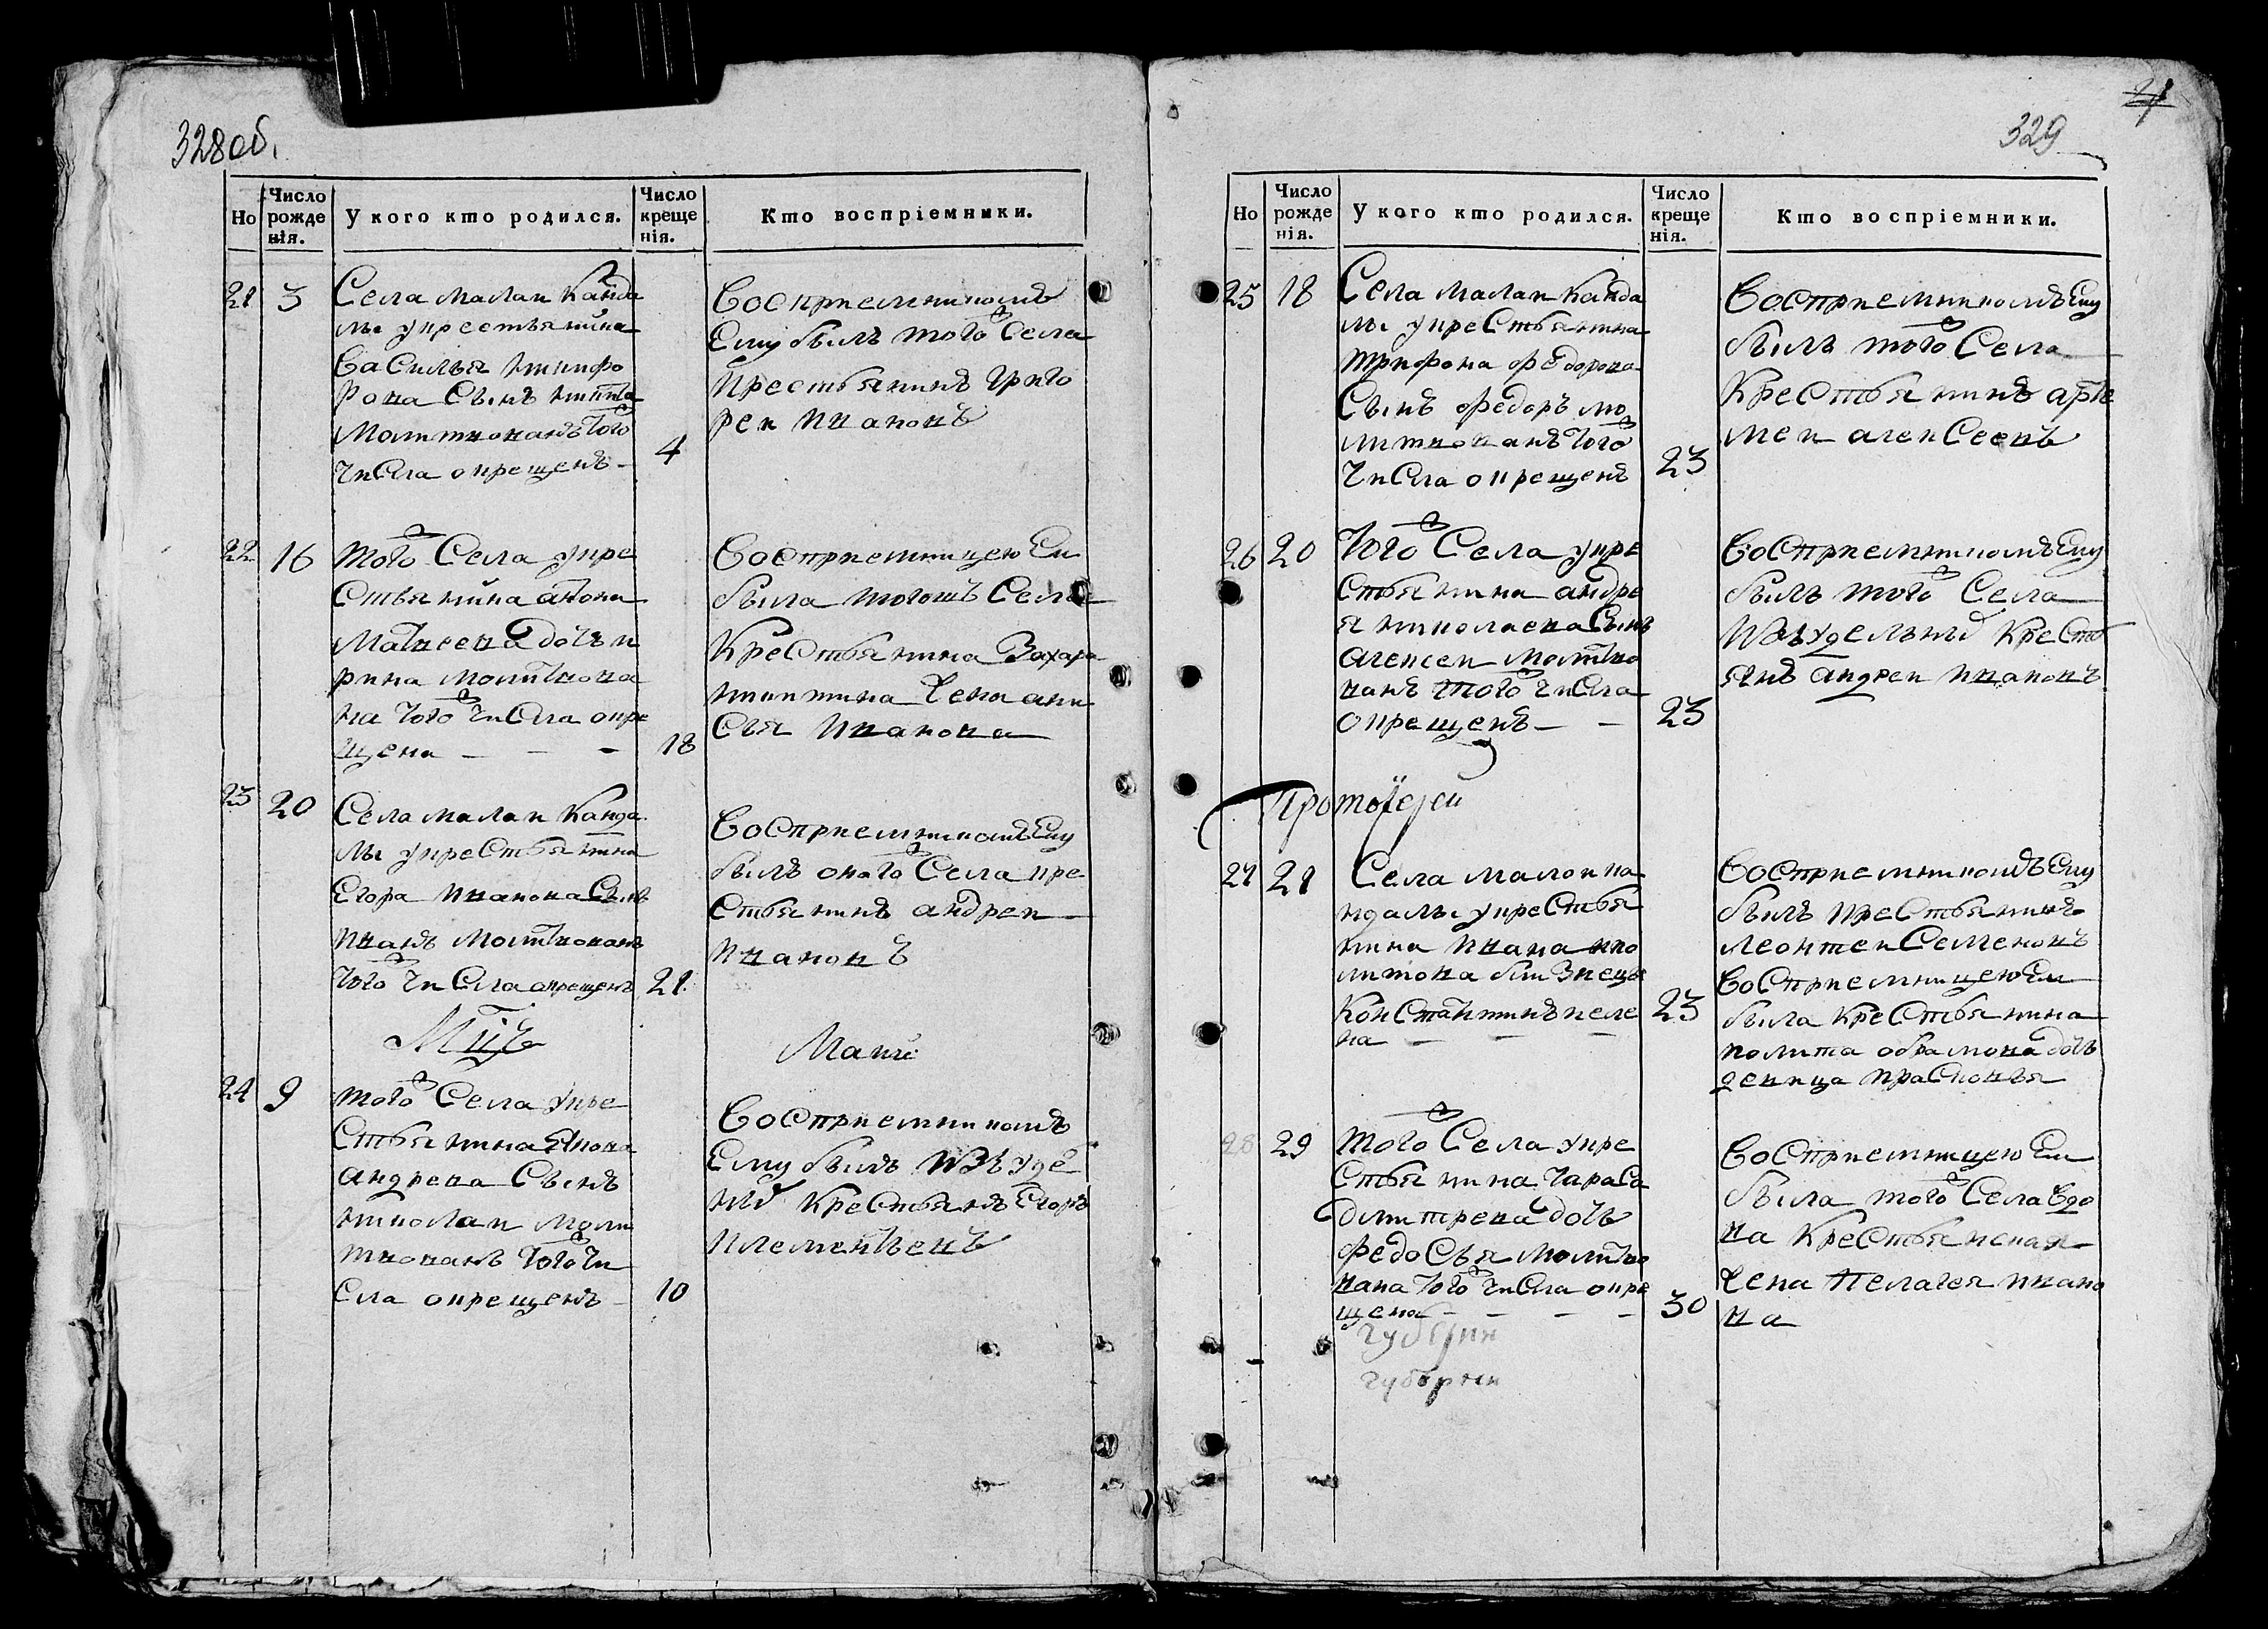 328 об.
Но
Число рожденія.
У кого кто родился.
Число крещенія.
Кто воспріемники.
21
3
Села малаи Канда
лы укрестьянина
Василья никифо
рова Сынъ никита
Молитвованъ того
числа окрещенъ
4
Восприемникомъ
Ему былъ того Села
крестьянинъ григо
реи ивановъ
22
16
того Села укре
Стьянина антона
Матвеева дочь и
рина молитвова
на того числа окре
щена
18
Восприемницею Еи
была тогожъ Села
Крестьянина Захара
никитина жена ани
Сья иванова
23
20
Села малаи Канда
лы укрестьянина
Егора иванова Сынъ
иванъ молитвованъ
того числа окрещенъ
21
Восприемникомъ Ему
былъ онаго Села кре
Стьянинъ андреи
ивановъ
Маиъ
Маии
24
9
того Села укре
Стьянина якова
андреева Сынъ
николаи моли
твованъ того чи
Сла окрещенъ
10
Восприемникомъ
Ему былъ изъ уде
ны Крестьянъ Егоръ
клементьевъ
329
Но
Число рожденія.
У кого кто родился.
Число крещенія.
Кто воспріемники.
25
18
Села малаи Канда
лы укрестьянина
трифона федорова
Сынъ федоръ мо
литвованъ того
числа окрещенъ
23
Восприемникомъ Ему
былъ того Села
Крестьянинъ арте
меи алексеевъ
26
20
того Села укре
Стьянина андре
я николаева Сынъ
алексеи молитво
ванъ того числа
окрещенъ
23
Восприемникомъ Ему
былъ того Села
изъ удельны Крестъ
янъ андреи ивановъ
Протоіереи
27
21
Села малои ка
ндалы укрестья
нина ивана ипо
литова близнецы
Константинъ и еле
на
23
Восприемникомъ Ему
былъ крестьянинъ
леонтеи Семеновъ
восприемницею Еи
была крестьянина
иполита абрамова дочь
девица прасковья
28
29
того Села укре
Стьянина тараса
дмитрева дочь
федосья молитво
вана того числа окре
щена
30
Восприемницею Еи
была того Села вдо
ва Крестьянская
жена Пелагея ивано
ва
губерни
губернии